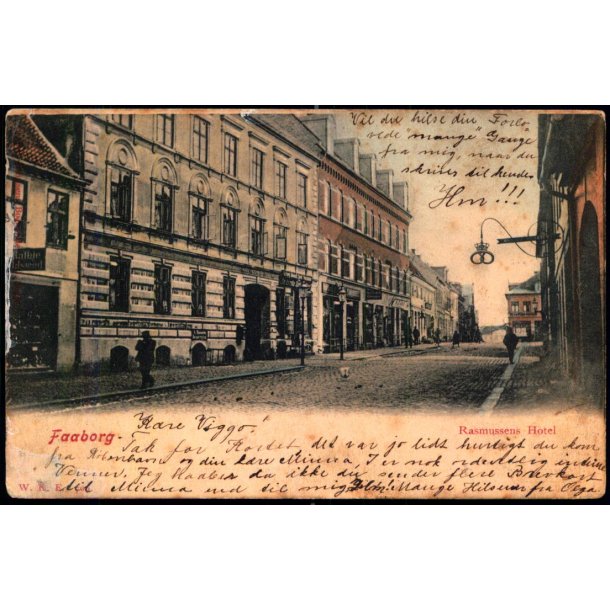 Vil du hilse din Forlo-
vede "mange" Gange
fra mig, naar du
skriver til hende
Hm!!!
Faaborg.
Rasmussens Hotel
Kære Viggo!
Tak for Kortet, det var jo lidt hurtigt du kom
fra Kjøbenhavn og din kære Minna I er nok ordentlig intime
Venner, Jeg haaber da ikke du sender flere Brevkort
til Minna end til mig Hm! Mange Hilsner fra Olga